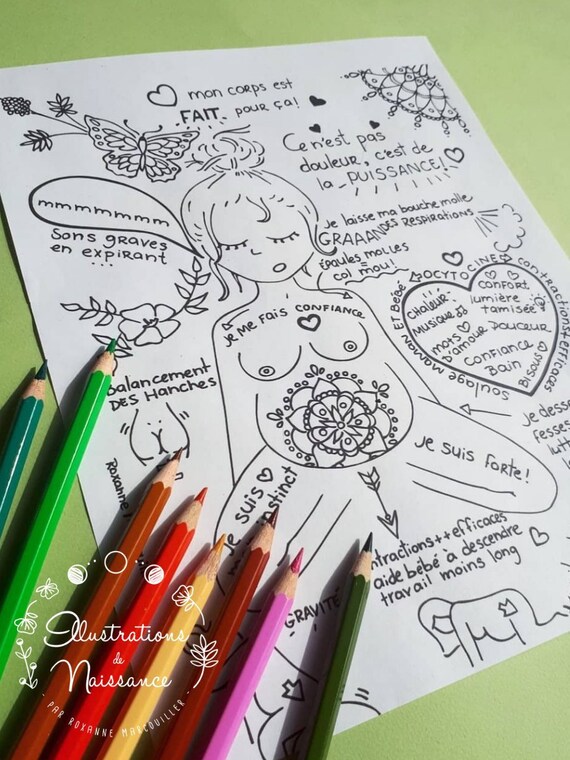 mon corps est
FAIT pour ça!
Ce n'est pas
douleur, c'est de
la PUISSANCE!
mmmmmmmm
Sons graves
en expirant
...
Je laisse ma bouche molle
GRAAAANDES RESPIRATIONS
épaules molles
col mou!
JE ME FAIS CONFIANCE
OCYTOCINE
contractions+effic
soulage MAMAN Et BéBé
CHALEUR
MUSIQUE
mots
d'amour
confort
lumière
tamisée
DOUCEUR
CONFIANCE
Bain
BISOUS
Balancement
DES HANCHES
Roxanne
Je suis
instinct
Je suis forte!
Je desse
fesses
lutt
contractions++efficaces
aide bébé à descendre
travail moins long
GRAVITé
Illustrations
de
Naissance
PAR ROXANNE MARCOUILLER